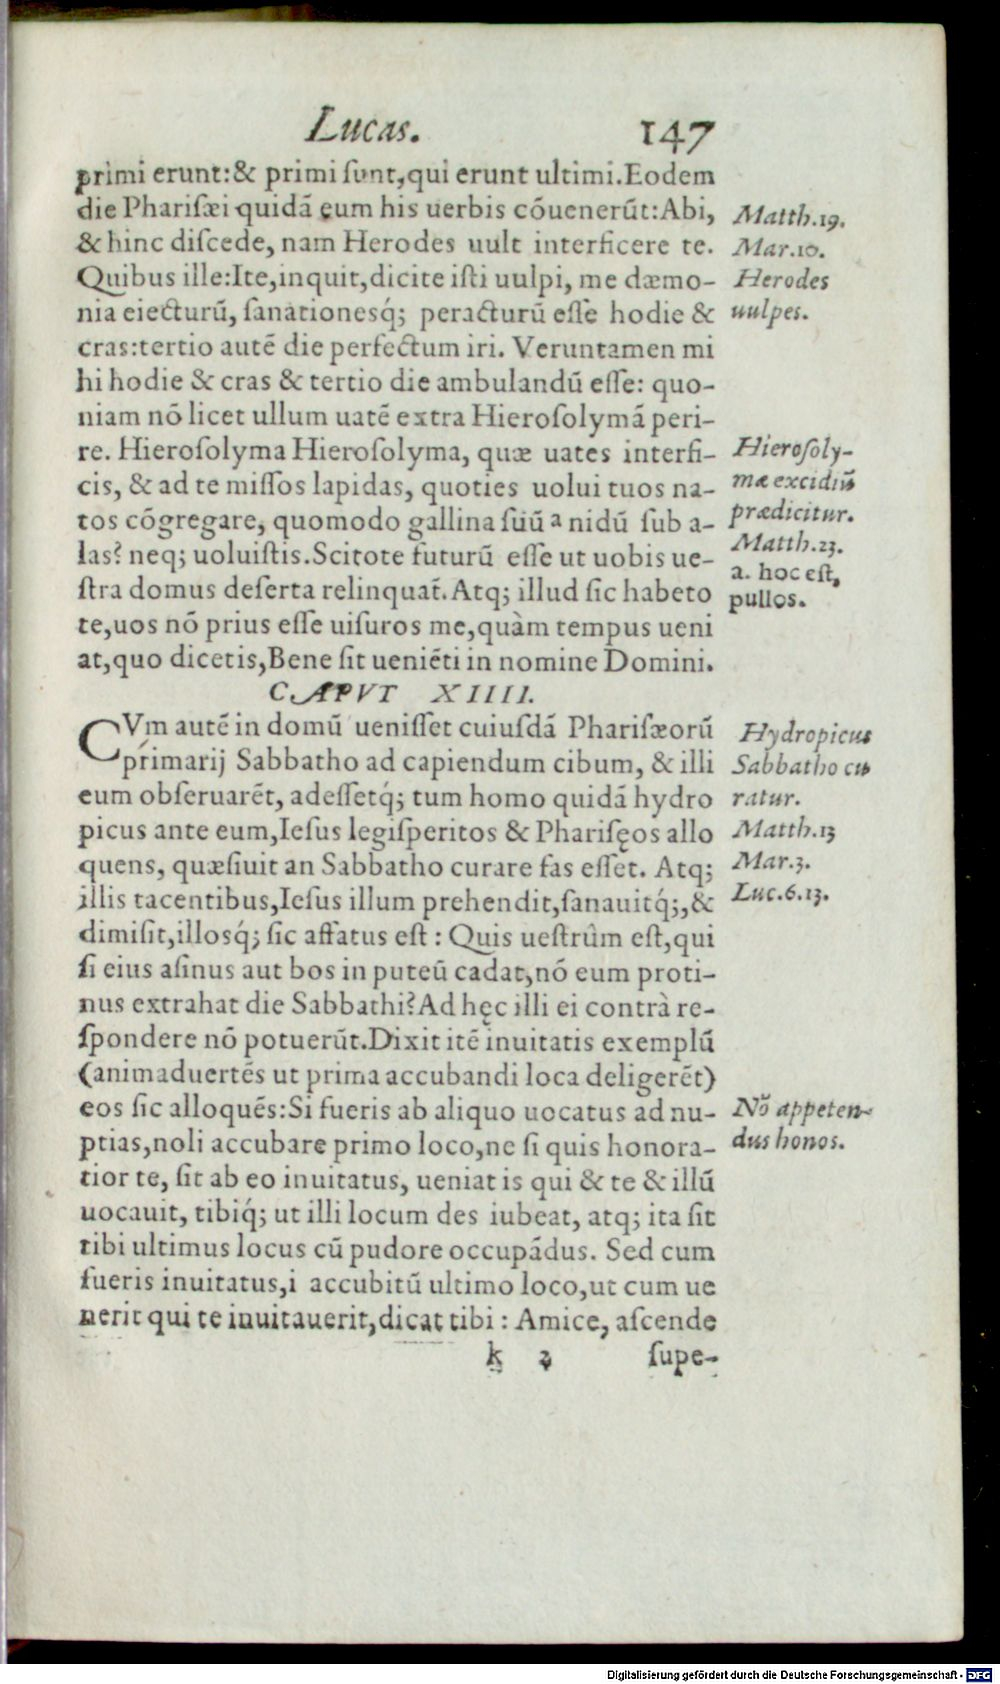 Lucas. 147
primi erunt:& primi ſunt,qui erunt ultimi.Eodem
die Phariſæi quidã eum his uerbis cõuenerũt:Abi,
& hinc diſcede, nam Herodes uult interficere te.
Quibus ille:Ite,inquit,dicite iſti uulpi, me dæmo-
nia eiecturũ, ſanationesq́; peracturũ eſſe hodie &
cras:tertio autẽ die perfectum iri. Veruntamen mi
hi hodie & cras & tertio die ambulandũ eſſe: quo-
niam nõ licet ullum uatẽ extra Hieroſolymã peri-
re. Hieroſolyma Hieroſolyma, quæ uates interfi-
cis, & ad te miſſos lapidas, quoties uolui tuos na-
tos cõgregare, quomodo gallina ſuũ a nidũ ſub a-
las? neq; uoluiſtis.Scitote futurũ eſſe ut uobis ue-
ſtra domus deſerta relinquat̃. Atq; illud ſic habeto
te,uos nõ prius eſſe uiſuros me,quàm tempus ueni
at,quo dicetis,Bene ſit ueniẽti in nomine Domini.
Matth.19.
Mar.10.
Herodes
uulpes.
Hieroſoly-
mæ excidiũ
prædicitur.
Matth.23.
a. hoc eſt,
pullos.
CAPVT XIIII.
CVm autẽ in domũ ueniſſet cuiuſdã Phariſæorũ
primarij Sabbatho ad capiendum cibum, & illi
eum obſeruarẽt, adeſſetq́; tum homo quidã hydro
picus ante eum,Ieſus legiſperitos & Phariſęos allo
quens, quæſiuit an Sabbatho curare fas eſſet. Atq;
illis tacentibus,Ieſus illum prehendit,ſanauitq́;,&
dimiſit,illosq́; ſic affatus eſt : Quis ueſtrûm eſt,qui
ſi eius aſinus aut bos in puteũ cadat,nõ eum proti-
nus extrahat die Sabbathi? Ad hęc illi ei contrà re-
ſpondere nõ potuerũt.Dixit itẽ inuitatis exemplũ
(animaduertẽs ut prima accubandi loca deligerẽt)
eos ſic alloquẽs:Si fueris ab aliquo uocatus ad nu-
ptias,noli accubare primo loco,ne ſi quis honora-
tior te, ſit ab eo inuitatus, ueniat is qui & te & illũ
uocauit, tibiq́; ut illi locum des iubeat, atq; ita ſit
tibi ultimus locus cũ pudore occupãdus. Sed cum
fueris inuitatus,i accubitũ ultimo loco,ut cum ue
nerit qui te inuitauerit,dicat tibi : Amice, aſcende
Hydropicus
Sabbatho cu
ratur.
Matth.13
Mar.3.
Luc.6.13.
Nõ appeten-
dus honos.
k 2 ſupe-
Digitalisierung gefördert durch die Deutsche Forschungsgemeinschaft - DFG